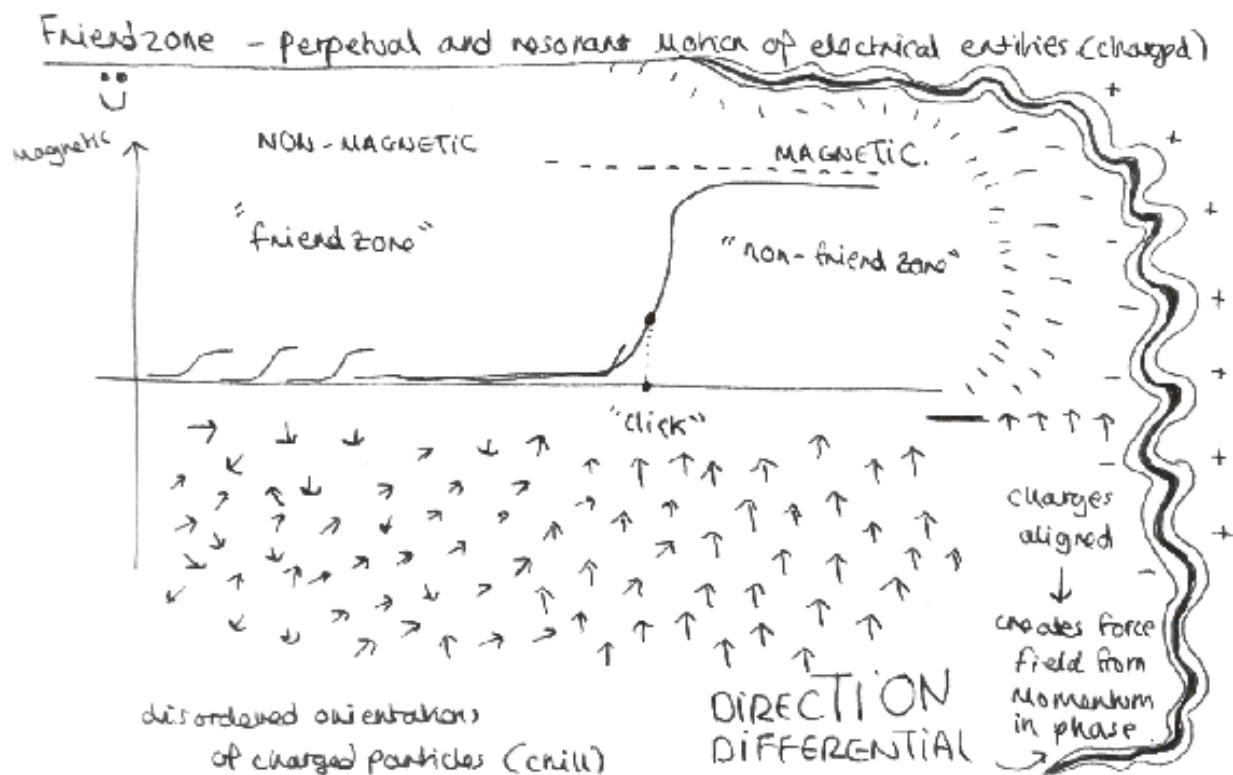 Friendzone - perpetual and resonant motion of electrical entities (charged)
magnetic
NON-MAGNETIC
MAGNETIC.
"friendzone"
"non-friendzone"
"click"
charges
aligned
creates force
field from
momentum
in phase
disordered orientations
of charged particles (chill)
DIRECTION
DIFFERENTIAL